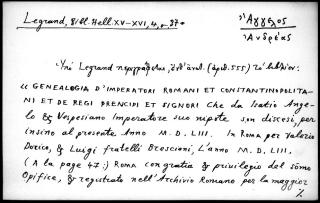 Legrand, Bibl. Hell. XV-XVI, 4, σ. 87
Ἄγγελος
Ἀνδρέας
Ὑπὸ Legrand περιγράφεται, (ἀριθ. 555) τὸ βιβλίον:
« GENEALOGIA D'IMPERATORI ROMANI ET CONSTANTINOPOLITA-
NI ET DE REGI PRENCIPI ET SIGNORI Che da Isatio Ange-
lo & Vespesiano Imperatore suo nipote son discesi, per
insino al presente Anno M. D. LIII. In Roma per Valerio
Dorico, & Luigi fratelli Bresciani, L'anno M. D. LIII.
(A la page 47:) Roma con gratia & privilegio del sōmo
Opifice, & registrato nell'Archivio Romano per la maggior
%